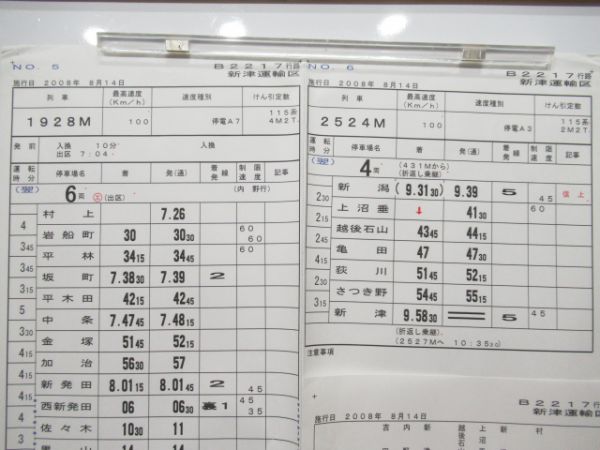 NO. 5
B2217行路
新津運輸区
施行日 2008年 8月14日
列車 最高速度 (Km/h) 速度種別 けん引定数
1928M 100 停電A7 115系 4M2T
発前 入換 10分 入換
出区 7:04
運転時分 停車場名 着 発(通) 着発線 制限速度 記事
6両 (出区) (内野行)
村上 7.26
4
岩船町 30 30 30 60 60
3 45
平林 34 15 34 45
3 45
坂町 7.38 30 7.39 2
2 40
平木田 42 15 42 45
5
中条 7.47 45 7.48 15
3 30
金塚 51 45 52 15
4 15
加治 56 30 57
4 15
新発田 8.01 15 8.01 45 2 45
4 15
西新発田 06 06 30 裏1 45 35
4
佐々木 10 30 11
3
黒山 14
NO. 6
B2217行路
新津運輸区
施行日 2008年 8月14日
列車 最高速度 (Km/h) 速度種別 けん引定数
2524M 100 停電A3 115系 2M2T
運転時分 停車場名 着 発(通) 着発線 制限速度 記事
4両 (431Mから) (折返し乗継)
新潟 (9.31 30) 9.39 5 45
2 30
上沼垂 ↓ 41 30 60
2 15
越後石山 43 45 44 15
2 45
亀田 47 47 30
4 15
荻川 51 45 52 15
2 30
さつき野 54 45 55 15
3 15
新津 9.58 30 5 45
(折返し乗継)
(2527Mへ 10:35 30)
注意事項
B2217行路
新津運輸区
施行日 2008年 8月14日